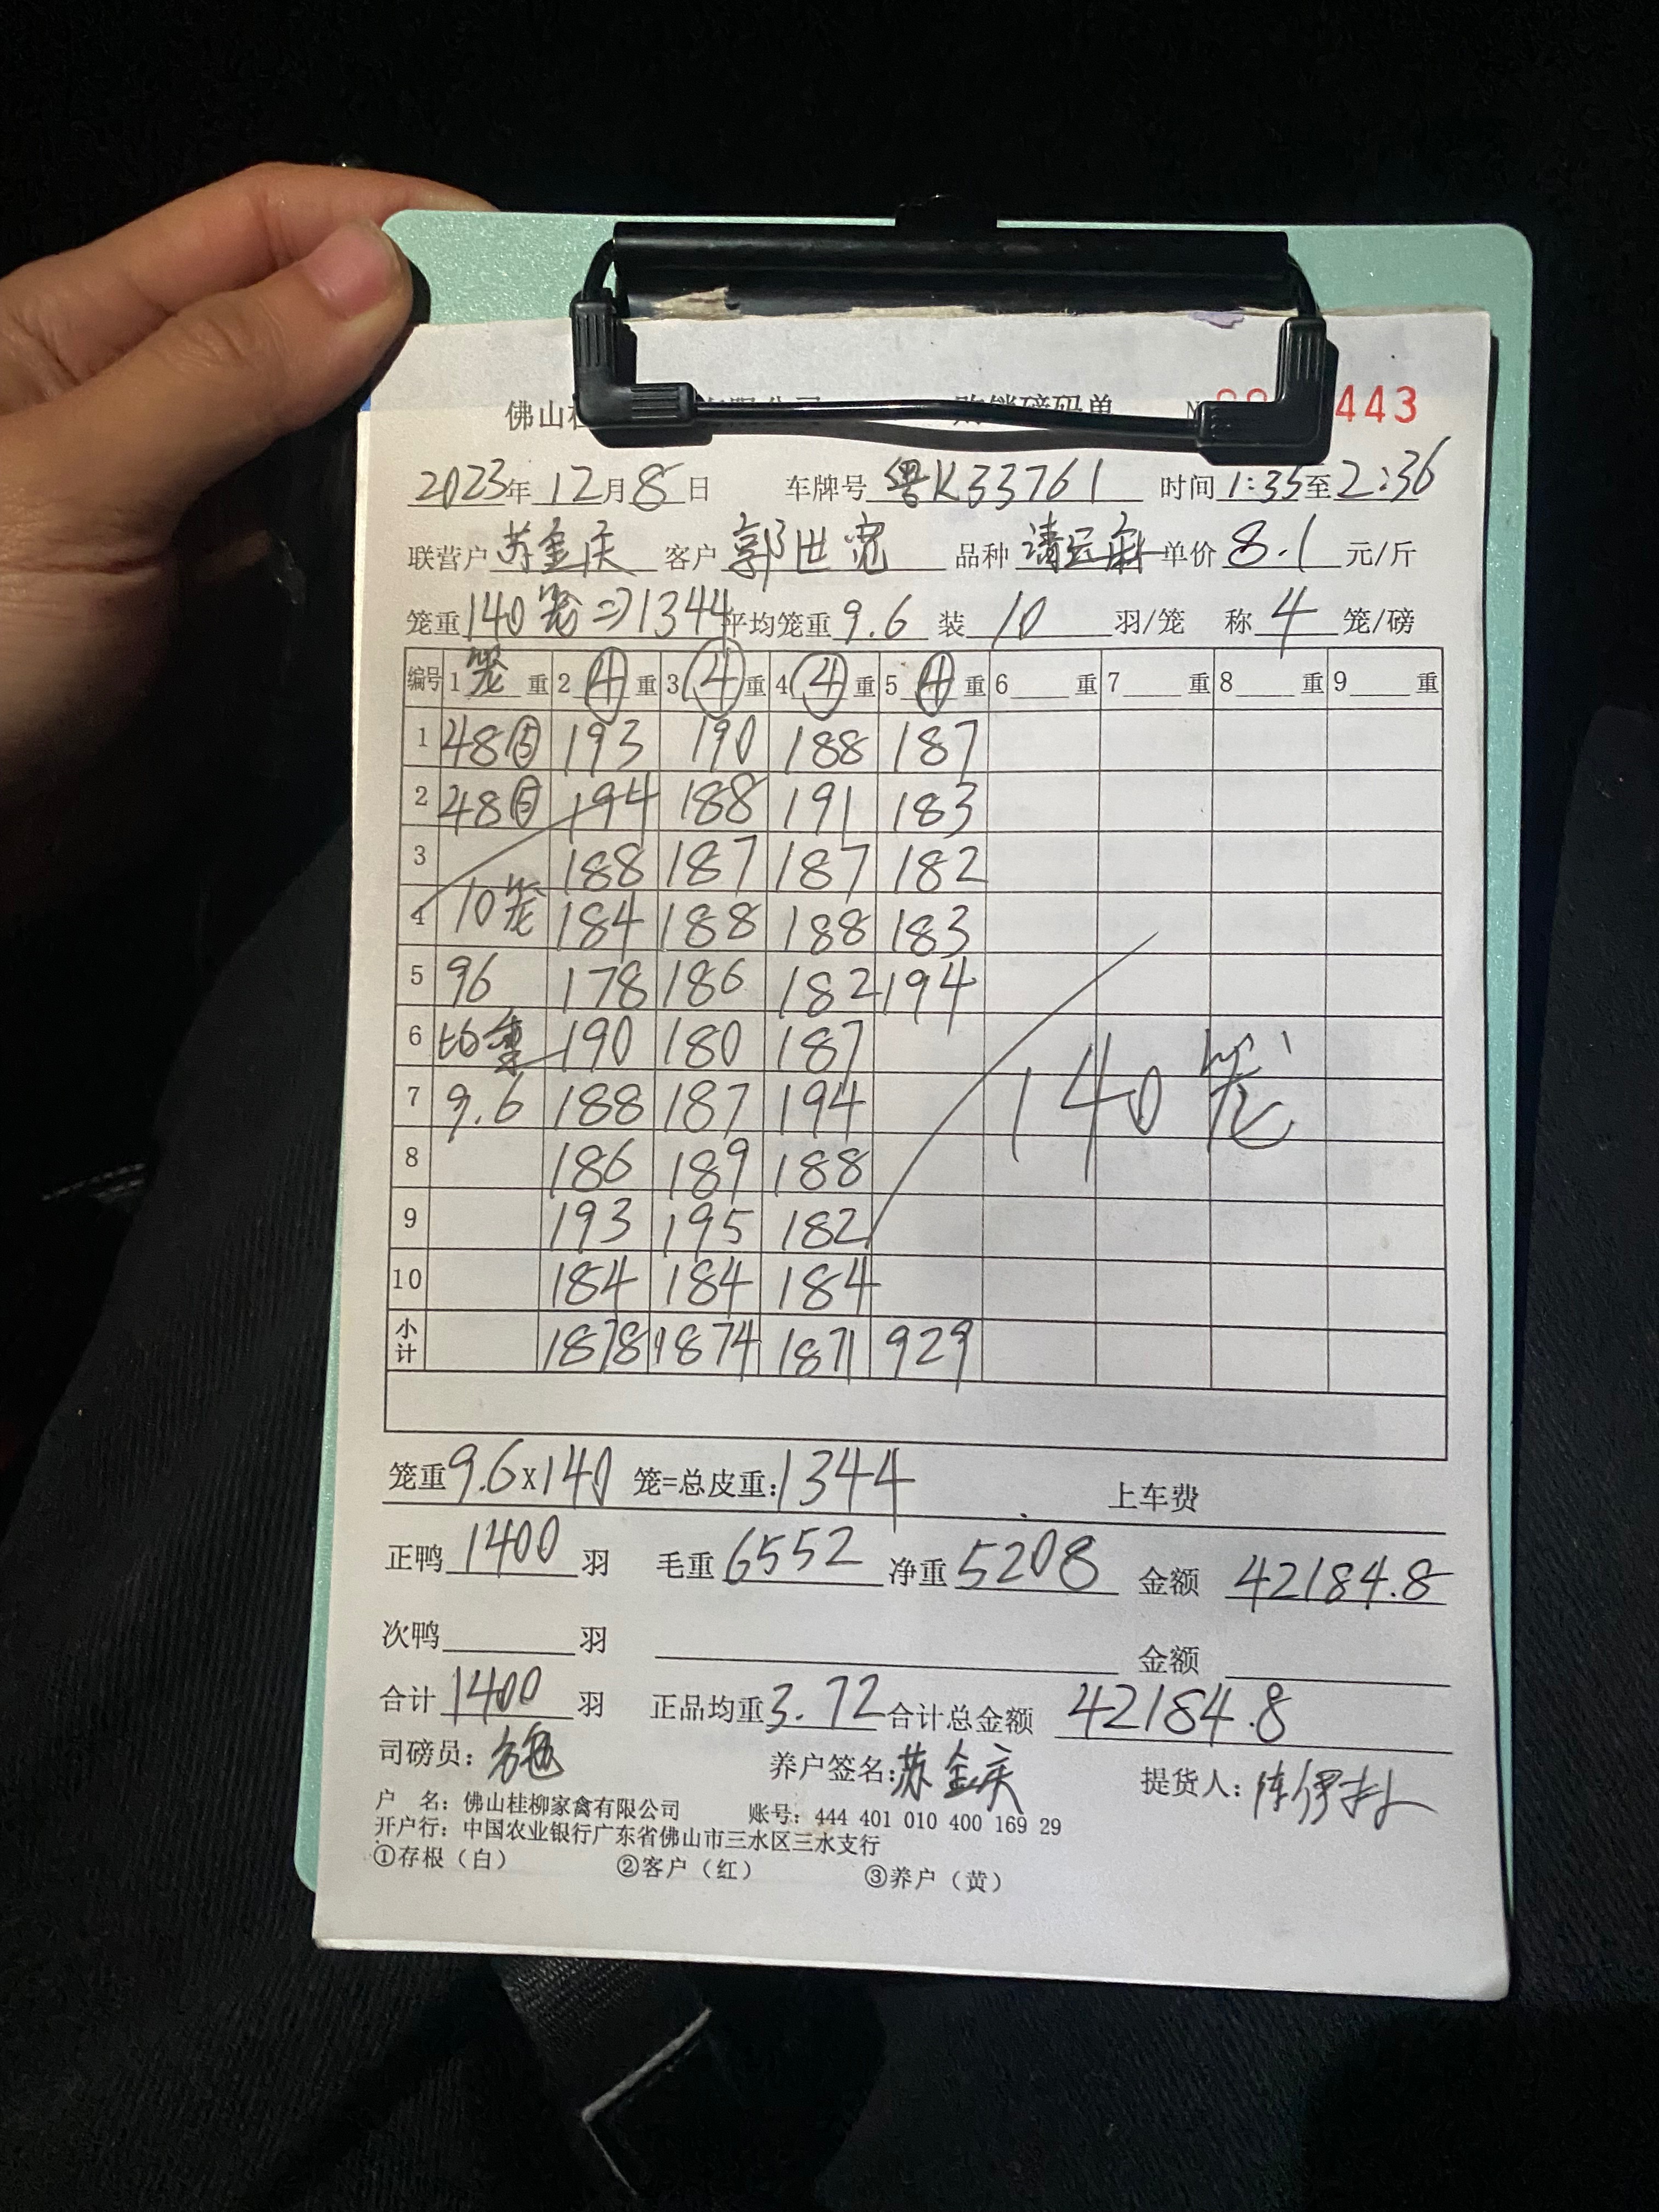 佛山桂 购销磅码单 443
2023年 12月 8日 车牌号 粤K33761 时间 1:35至2:36
联营户 苏金庆 客户 郭世宽 品种 请远麻 单价 8.1 元/斤
笼重 140笼=>1344 平均笼重 9.6 装 10 羽/笼 称 4 笼/磅
编号 1 笼 重 2 4 重 3 4 重 4 4 重 5 4 重 6 重 7 重 8 重 9 重
1 48⑤ 193 190 188 187
2 48⑤ 194 188 191 183
3 188 187 187 182
4 10笼 184 188 188 183
5 96 178 186 182 194
6 190 180 187
7 9.6 188 187 194
140笼
8 186 189 188
9 193 195 182
10 184 184 184
小计 1878 1874 1871 929
笼重 9.6×140 笼=总皮重: 1344 上车费
正鸭 1400 羽 毛重 6552 净重 5208 金额 42184.8
次鸭 羽 金额
合计 1400 羽 正品均重 3.72 合计总金额 42184.8
司磅员: 养户签名: 苏金庆 提货人:
户 名: 佛山桂柳家禽有限公司 账号: 444 401 010 400 169 29
开户行: 中国农业银行广东省佛山市三水区三水支行
①存根（白） ②客户（红） ③养户（黄）